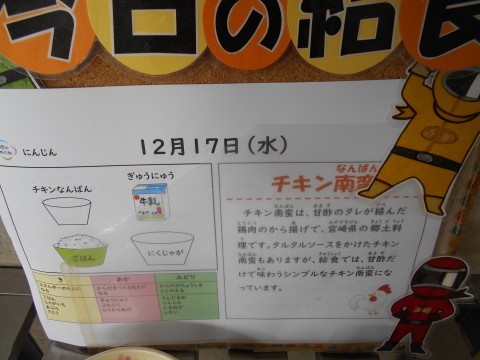 今日の給食
にんじん
12月17日(水)
チキンなんばん
ぎゅうにゅう
牛乳
ごはん
にくじゃが
なんばん
チキン南蛮
チキン南蛮は、甘酢のタレが絡んだ
鶏肉のから揚げで、宮崎県の郷土料
理です。タルタルソースをかけたチキン
南蛮もありますが、給食では、甘酢だ
けで味わうシンプルなチキン南蛮にな
っています。
き
あか
みどり
ごはん
ぎゅうにゅう